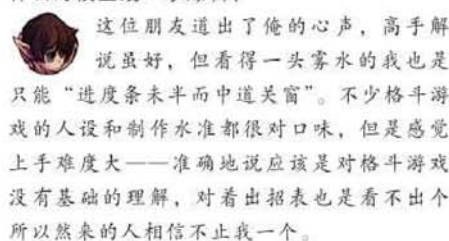 这位朋友道出了俺的心声，高手解
说虽好，但看得一头雾水的我也是
只能“进度条未半而中道关窗”。不少格斗游
戏的人设和制作水准都很对口味，但是感觉
上手难度大——准确地说应该是对格斗游戏
没有基础的理解，对着出招表也是看不出个
所以然来的人相信不止我一个。